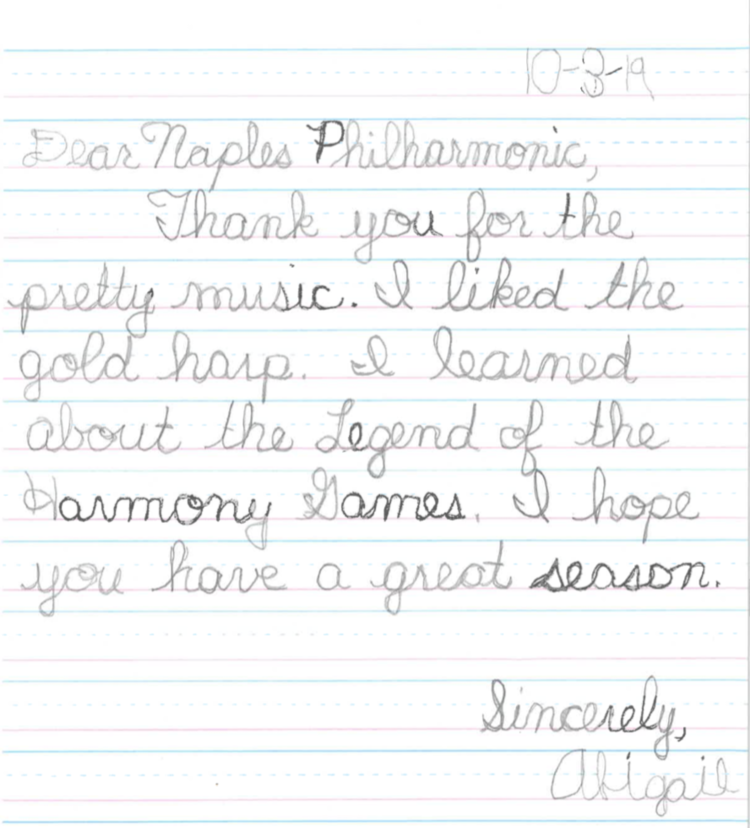 10-3-19
Dear Naples Philharmonic,
Thank you for the
pretty music. I liked the
gold harp. I learned
about the Legend of the
Harmony Games. I hope
you have a great season.
Sincerely,
Abigail